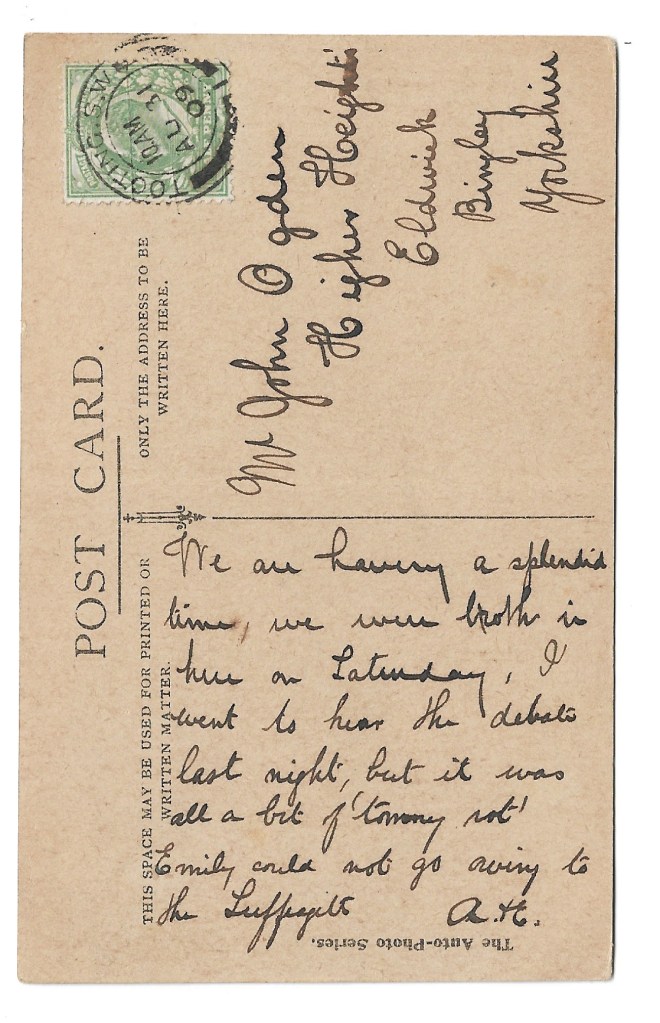 POST CARD.
THIS SPACE MAY BE USED FOR PRINTED OR
WRITTEN MATTER.
ONLY THE ADDRESS TO BE
WRITTEN HERE.
TOOTING. S.W.
10. AM
AU 31
09
We are having a splendid
time, we were both in
here on Saturday, I
went to hear the debate
last night, but it was
all a bit of 'tommy rot'
Emily could not go owing to
the Suffragetts A.H.
Mr John Ogden
Higher Heights
Eldwick
Bingley
Yorkshire
The Auto-Photo Series.